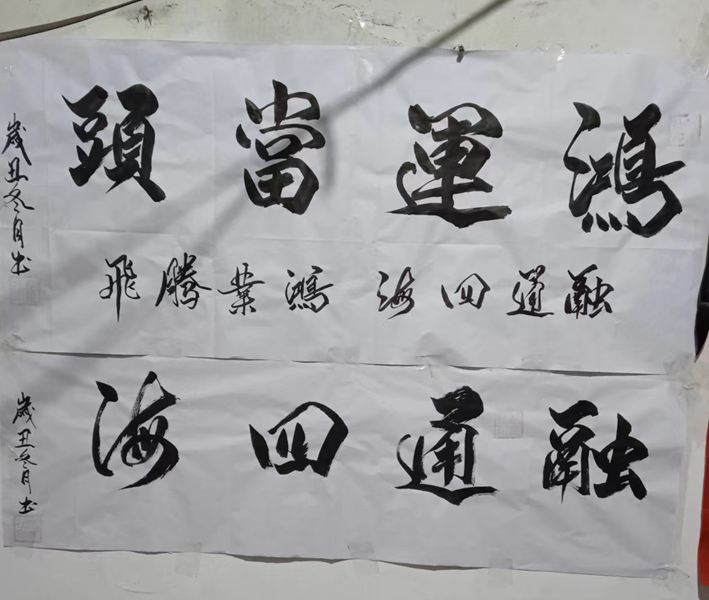 鴻運當頭
融通四海 鴻業騰飛
歲丑冬月书
融通四海
歲丑冬月书